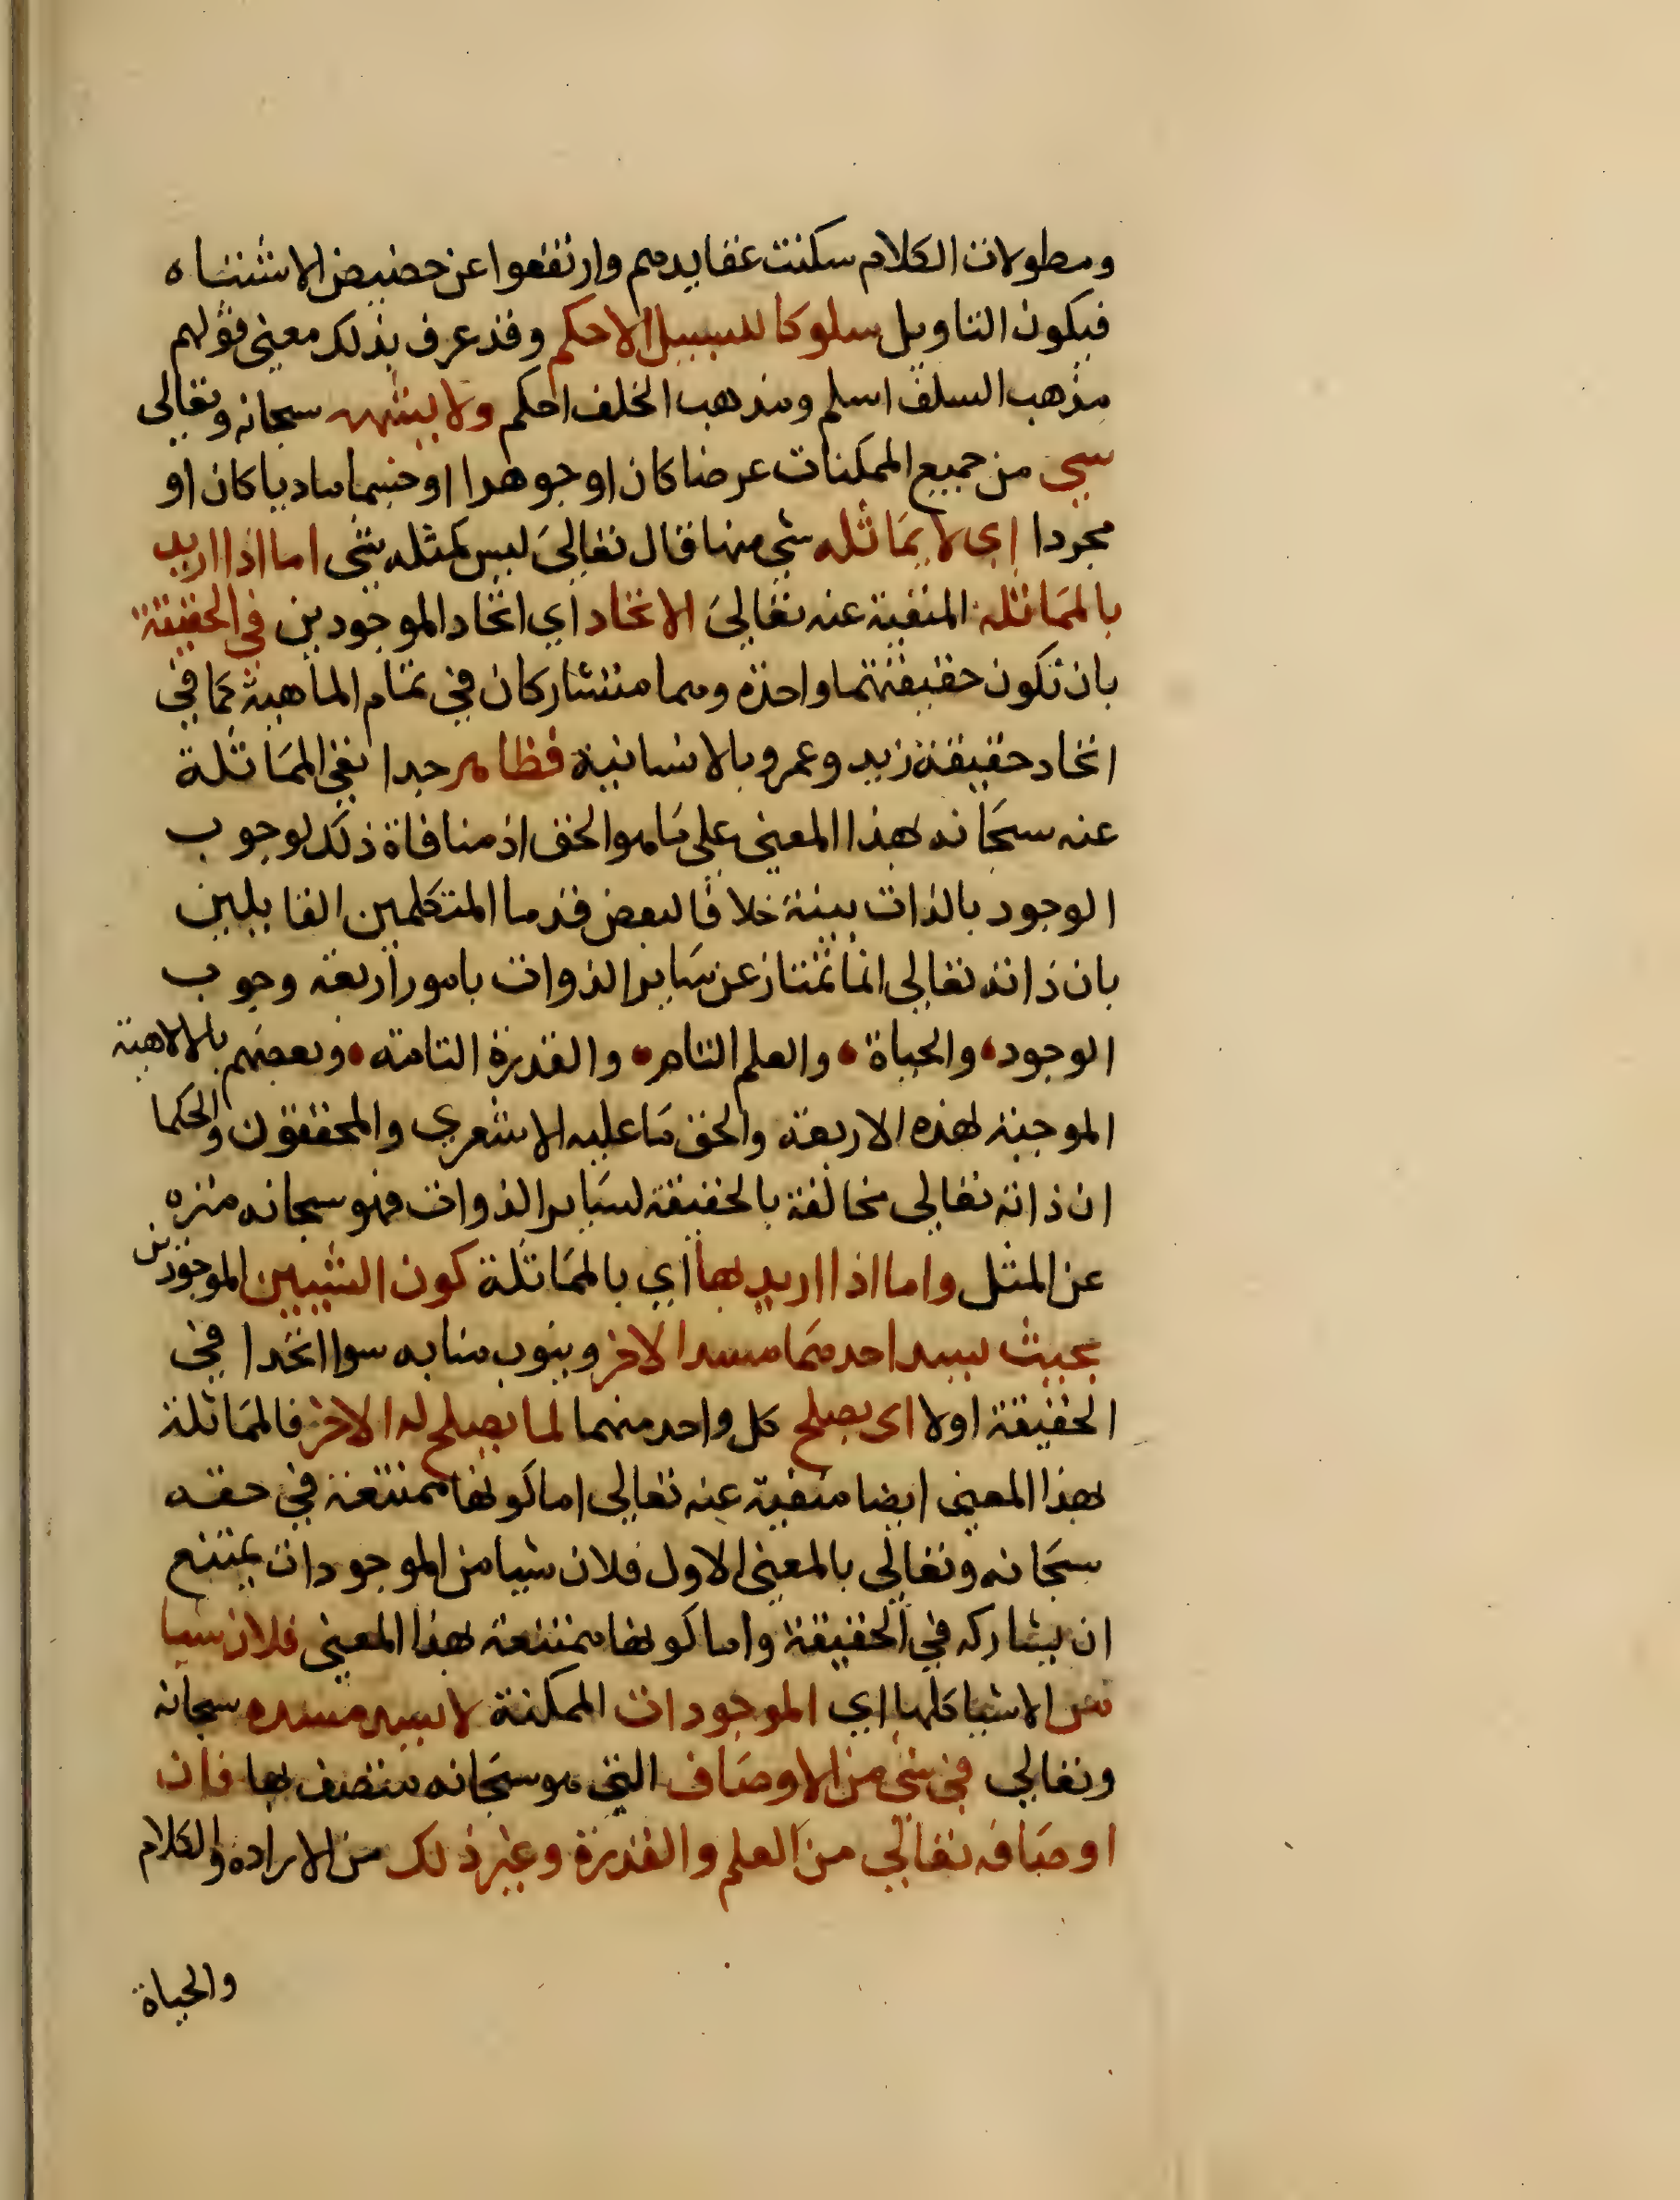 ومطولات الكلام سكنت عقايدهم وارتفعوا عن حضيض الاشتباه
فيكون التاويل سلوكا للسبيل الاحكم وقد عرف بذلك معني قولهم
مذهب السلف اسلم ومذهب الخلف احكم ولا يشبهه سبحانه وتعالي
شي من جميع الممكنات عرضا كان او جوهرا او جسما ماديا كان او
مجردا اي لا يماثله شي منها قال تعالي ليس كمثله شي اما اذا اريد
بالمماثله المنفية عنه تعالي الاتحاد اي اتحاد الموجودين في الحقيقة
بان تكون حقيقتهما واحدة وهما متشاركان في تمام الماهية كما في
اتحاد حقيقة زيد وعمرو بالانسانية فظاهر جدا نفي المماثلة
عنه سبحانه بهذا المعني علي ما هو الحق اذ منافاة ذلك لوجوب
الوجود بالذات بينة خلافا لبعض قدما المتكلمين القايلين
بان ذاته تعالي انما تمتاز عن ساير الذوات بامور اربعة وجوب
الوجود والحياة والعلم التام والقدرة التامة وبعضهم بالالاهية
الموجبة لهذه الاربعة والحق ما عليه الاشعري والمحققون والحكما
ان ذاته تعالي مخالفة بالحقيقة لساير الذوات فهو سبحانه منزه
عن المثل واما اذا اريد بها اي بالمماثلة كون الشيين الموجودين
بحيث يسد احدهما مسد الاخر وينوب منابه سوا اتحدا في
الحقيقة اولا اى يصلح كل واحد منهما لما يصلح له الاخر فالمماثلة
بهذا المعني ايضا منفية عنه تعالي اما كونها ممتنعة في حقه
سبحانه وتعالي بالمعني الاول فلان شيا من الموجودات يمتنع
ان يشاركه في الحقيقة واما كونها ممتنعة بهذا المعني فلان شيا
من الاشيا كلها اي الموجودات الممكنة لا يسد مسده سبحانه
وتعالي في شي من الاوصاف التي هو سبحانه متصف بها فان
اوصافه تعالي من العلم والقدرة وغير ذلك من الاراده والكلام
والحياة